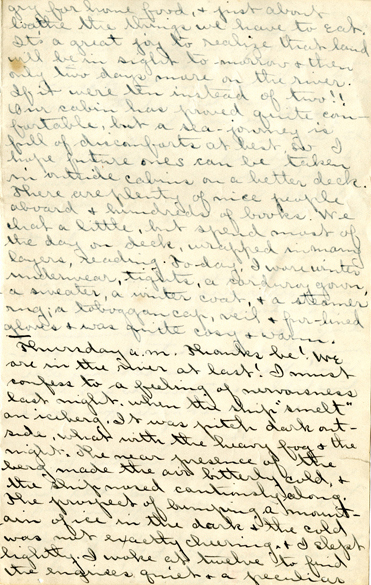 gry for home food, & just about
loathe the things we have to eat.
It's a great joy to realize that land
will be in sight to-morrow & then
only two days more on the river.
If it were ten instead of two!!
Our cabin has proved quite com-
fortable, but a sea-journey is
full of discomforts at best so I
hope future ones can be taken
in outside cabins on a better deck.
There are plenty of nice people
aboard & hundreds of books. We
chat a little, but spend most of
the day on deck, wrapped in many
layers, reading. To-day, I wore winter
underwear, tights, a corduroy gown,
a sweater, a winter coat, & a steamer
rug, a toboggan cap, veil & fur-lined
gloves & was quite cosy & warm.
Thursday a.m. Thanks be! We
are in the river at last! I must
confess to a feeling of nervousness
last night, when the ship "smelt"
an iceberg. It was pitch dark out-
side, what with the heavy fog & the
night. The near presence of the
berg made the air bitterly cold, &
the ship nosed cautiously along.
The prospect of bumping a mount-
ain of ice in the dark & the cold
was not exactly cheering, & I slept
lightly. I woke at twelve to find
the engines quiet & a peculiar